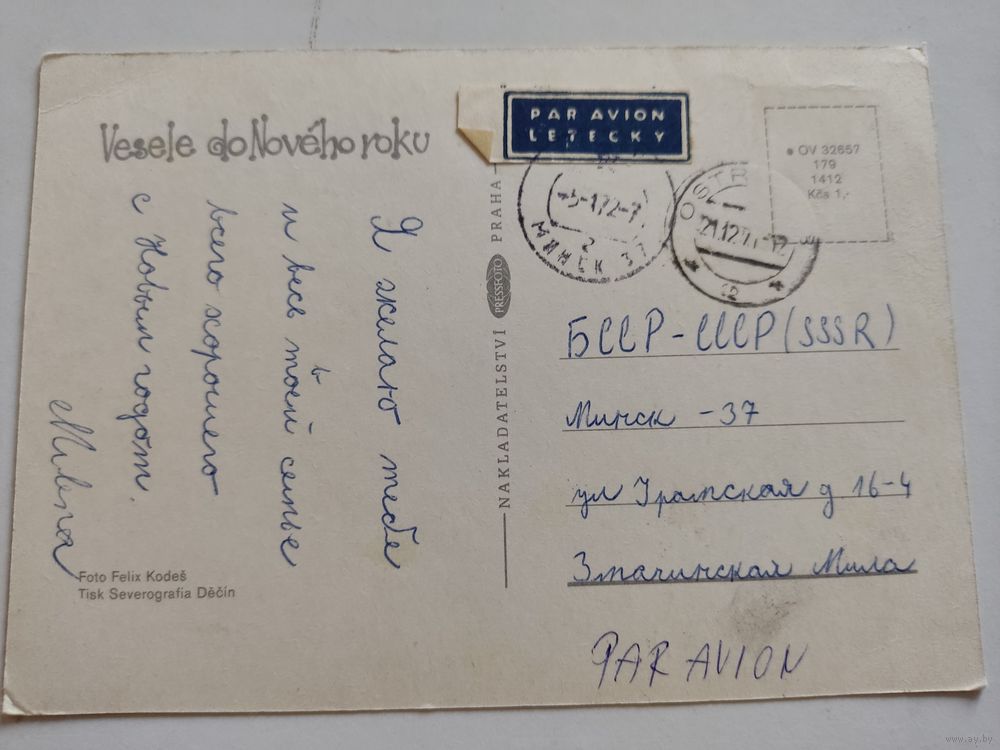 Vesele do Nového roku
Я желаю тебе
и весь в твоей семье
всего хорошего
с Новым годом.
Milena
Foto Felix Kodeš
Tisk Severografia Děčín
NAKLADATELSTVÍ PRESSFOTO PRAHA
PAR AVION
LETECKY
-5-172-7
2
МИНСК 37
OSTR
21.12.71
12
● OV 32657
179
1412
Kčs 1,-
БССР - СССР (SSSR)
Минск - 37
ул д 16-4
Змачинская Мила
PAR AVION
www.ay.by